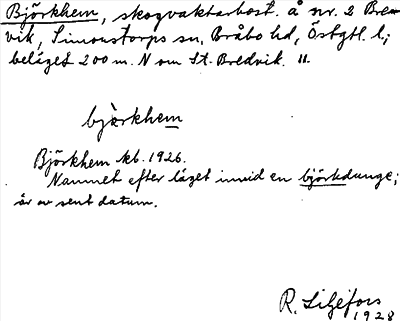 Björkhem, skogvaktarbost. å nr. 2 Bred-
vik, Simonstorps sn, Bråbo hd, Östgtl. l;
beläget 200 m. N om St. Bredvik. 11.
björkhem
Björkhem kb. 1926.
Namnet efter läget invid en björkdunge;
är av sent datum.
R. Liljefors
1928